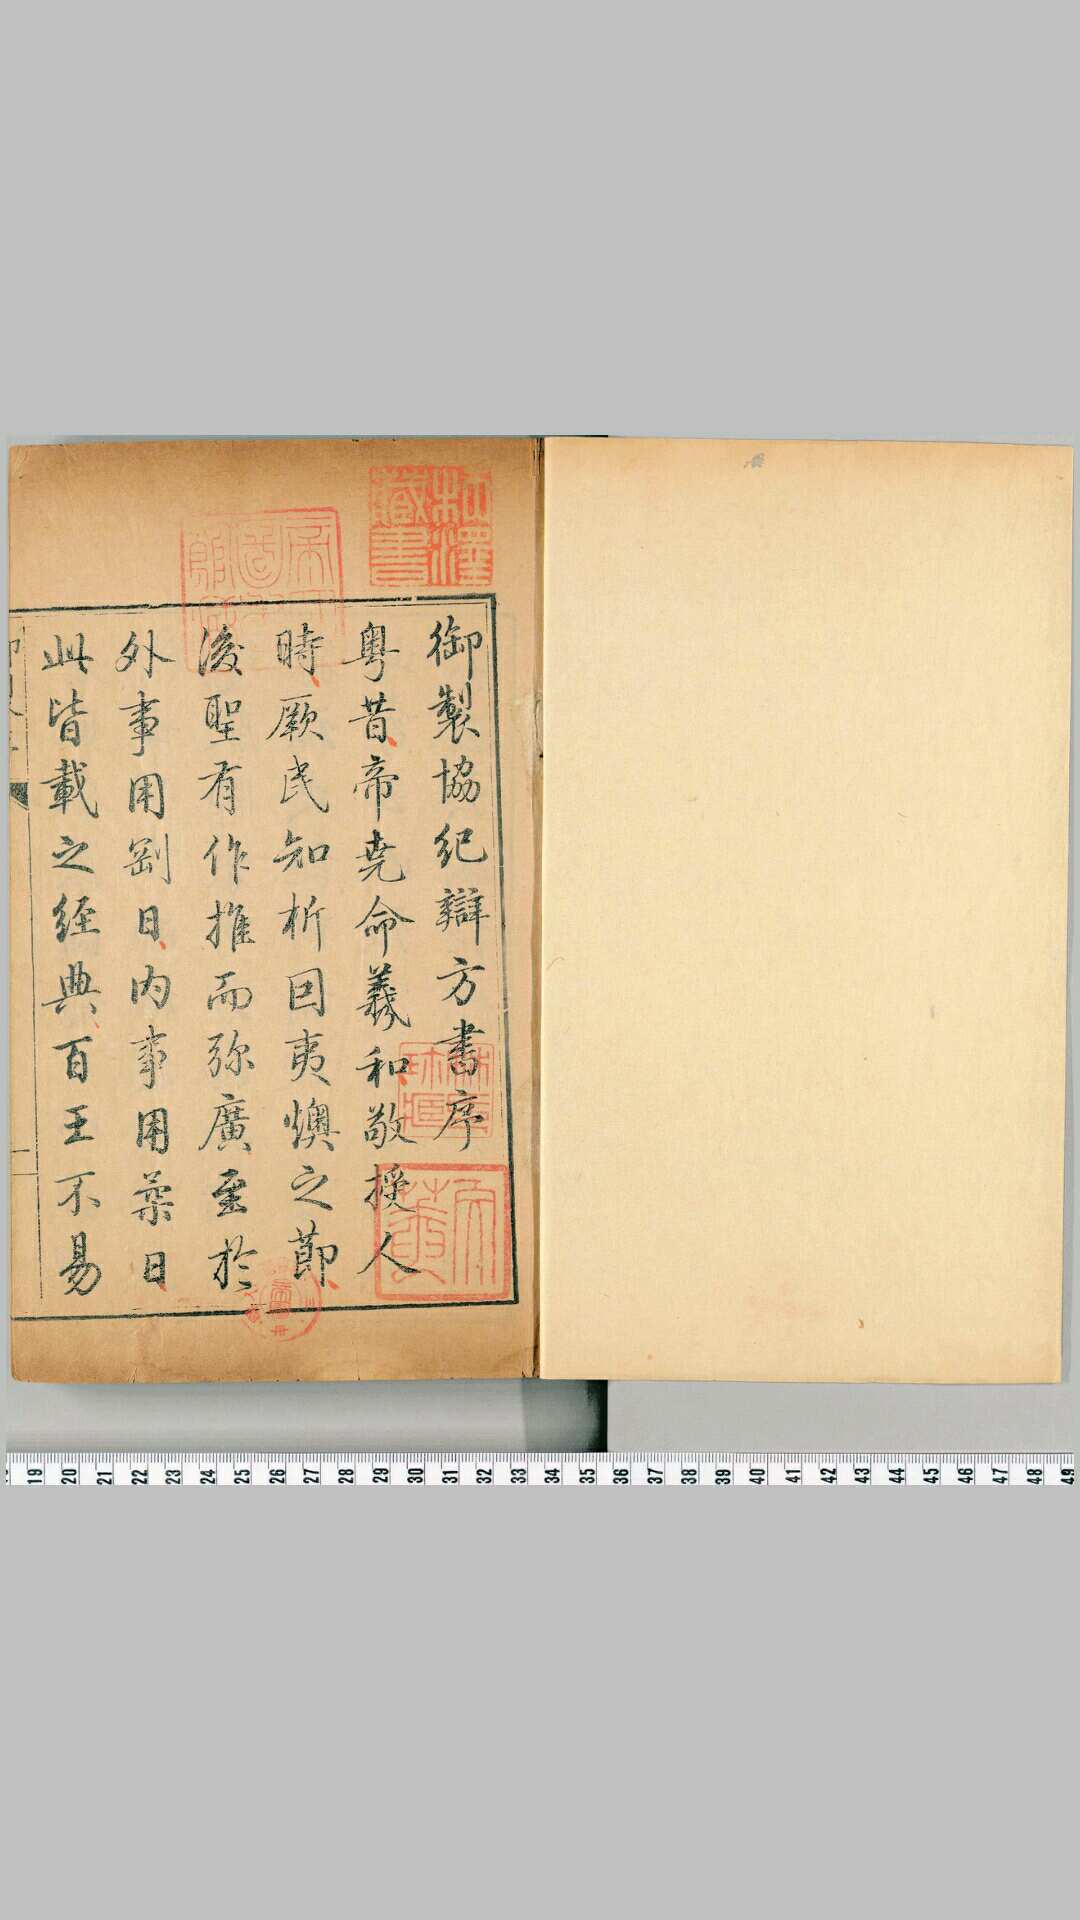 御製協紀辯方書序
粵昔帝堯命羲和敬授人
時厥民知析因夷燠之節
後聖有作推而弥廣至於
外事用剛日內事用柔日
此皆載之經典百王不易
藏書
19 20 21 22 23 24 25 26 27 28 29 30 31 32 33 34 35 36 37 38 39 40 41 42 43 44 45 46 47 48 49